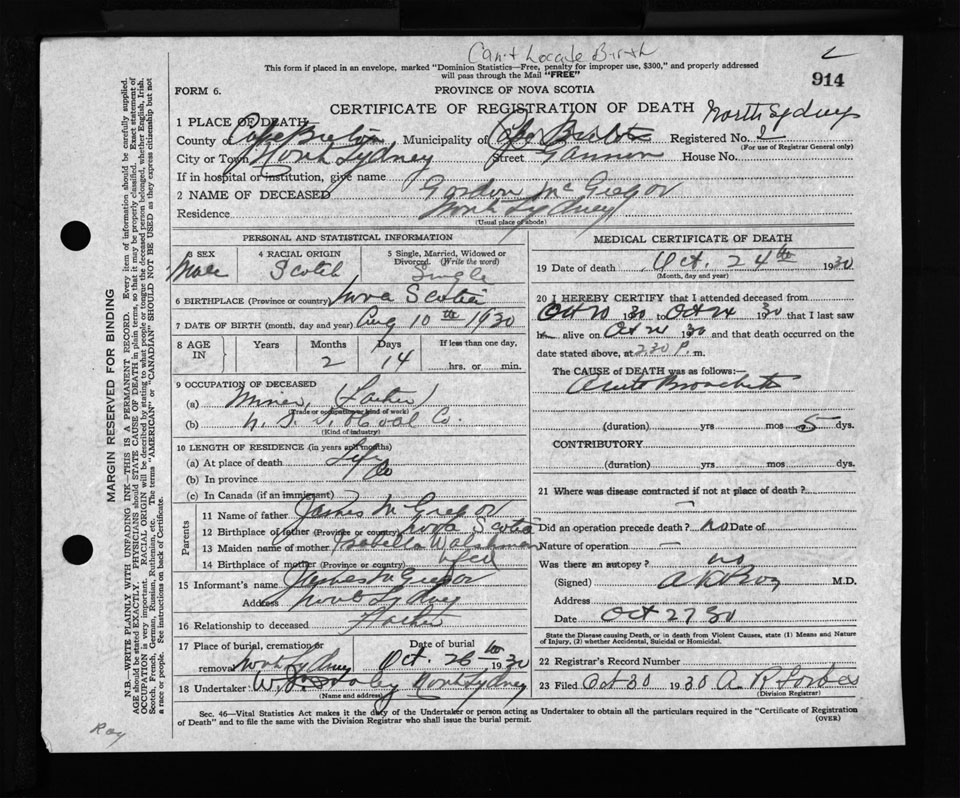 Can't Locate Birth
This form if placed in an envelope, marked "Dominion Statistics—Free, penalty for improper use, $300," and properly addressed
will pass through the Mail "FREE"
914
FORM 6.
PROVINCE OF NOVA SCOTIA
CERTIFICATE OF REGISTRATION OF DEATH North Sydney
1 PLACE OF DEATH
County Cape Breton Municipality of Cape Breton Registered No.
(For use of Registrar General only)
City or Town North Sydney Street Gannon House No.
If in hospital or institution, give name
2 NAME OF DECEASED Gordon McGregor
Residence North Sydney
(Usual place of abode)
PERSONAL AND STATISTICAL INFORMATION
3 SEX 4 RACIAL ORIGIN 5 Single, Married, Widowed or Divorced. (Write the word)
Male Scotch Single
6 BIRTHPLACE (Province or country) Nova Scotia
7 DATE OF BIRTH (month, day and year) Aug 10th 1930
8 AGE IN Years Months Days If less than one day,
2 14 hrs. or min.
9 OCCUPATION OF DECEASED
(a) Miner (Father)
(Trade or occupation or kind of work)
(b) N. S. S. & Coal Co.
(Kind of industry)
10 LENGTH OF RESIDENCE (in years and months)
(a) At place of death Life
(b) In province Do
(c) In Canada (if an immigrant)
Parents
11 Name of father James McGregor
12 Birthplace of father (Province or country) Nova Scotia
13 Maiden name of mother Isabella
14 Birthplace of mother (Province or country) Nfld
15 Informant's name James McGregor
Address North Sydney
16 Relationship to deceased Father
17 Place of burial, cremation or removal Date of burial
North Sydney Oct. 26 1930
18 Undertaker North Sydney
(Name and address)
MEDICAL CERTIFICATE OF DEATH
19 Date of death Oct. 24th 1930
(Month, day and year)
20 I HEREBY CERTIFY that I attended deceased from
Oct 20 1930 to Oct 24 1930 that I last saw
him alive on Oct 24 1930 and that death occurred on
date stated above, at 2.30 P. m.
The CAUSE of DEATH was as follows:—
Acute Bronchitis
(duration) yrs mos 5 dys.
CONTRIBUTORY
(duration) yrs. mos. dys.
21 Where was disease contracted if not at place of death?
Did an operation precede death? no Date of
Nature of operation
Was there an autopsy? no
(Signed) M.D.
Address
Date Oct 27 30
State the Disease causing Death, or in death from Violent Causes, state (1) Means and Nature
of Injury, (2) whether Accidental, Suicidal or Homicidal.
22 Registrar's Record Number
23 Filed Oct 30 1930 A R Forbes
(Division Registrar)
Sec. 46—Vital Statistics Act makes it the duty of the Undertaker or person acting as Undertaker to obtain all the particulars required in the "Certificate of Registration
of Death" and to file the same with the Division Registrar who shall issue the burial permit.
(OVER)
MARGIN RESERVED FOR BINDING
N.B.—WRITE PLAINLY WITH UNFADING INK—THIS IS A PERMANENT RECORD. Every item of information should be carefully supplied.
AGE should be stated EXACTLY. PHYSICIANS should STATE CAUSE OF DEATH in plain terms, so that it may be properly classified. Exact statement of
OCCUPATION is very important. RACIAL ORIGIN will be described by stating to what people or tongue the deceased person belonged, whether English, Irish,
Scotch, French, German, Russian, Ruthenian, etc. The terms "AMERICAN" or "CANADIAN" SHOULD NOT BE USED as they express citizenship but not
a race or people. See instructions on back of Certificate.
Ray